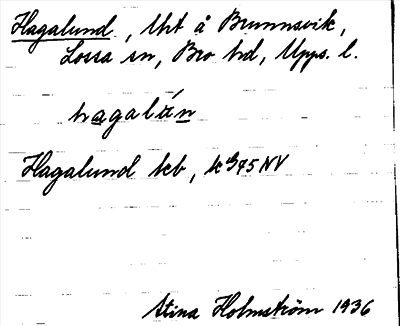 Hagalund, lht å Brunnsvik,
Lossa sn, Bro hd, Upps. l.
hagalún
Hagalund keb, 75 NV
Stina Holmström 1936